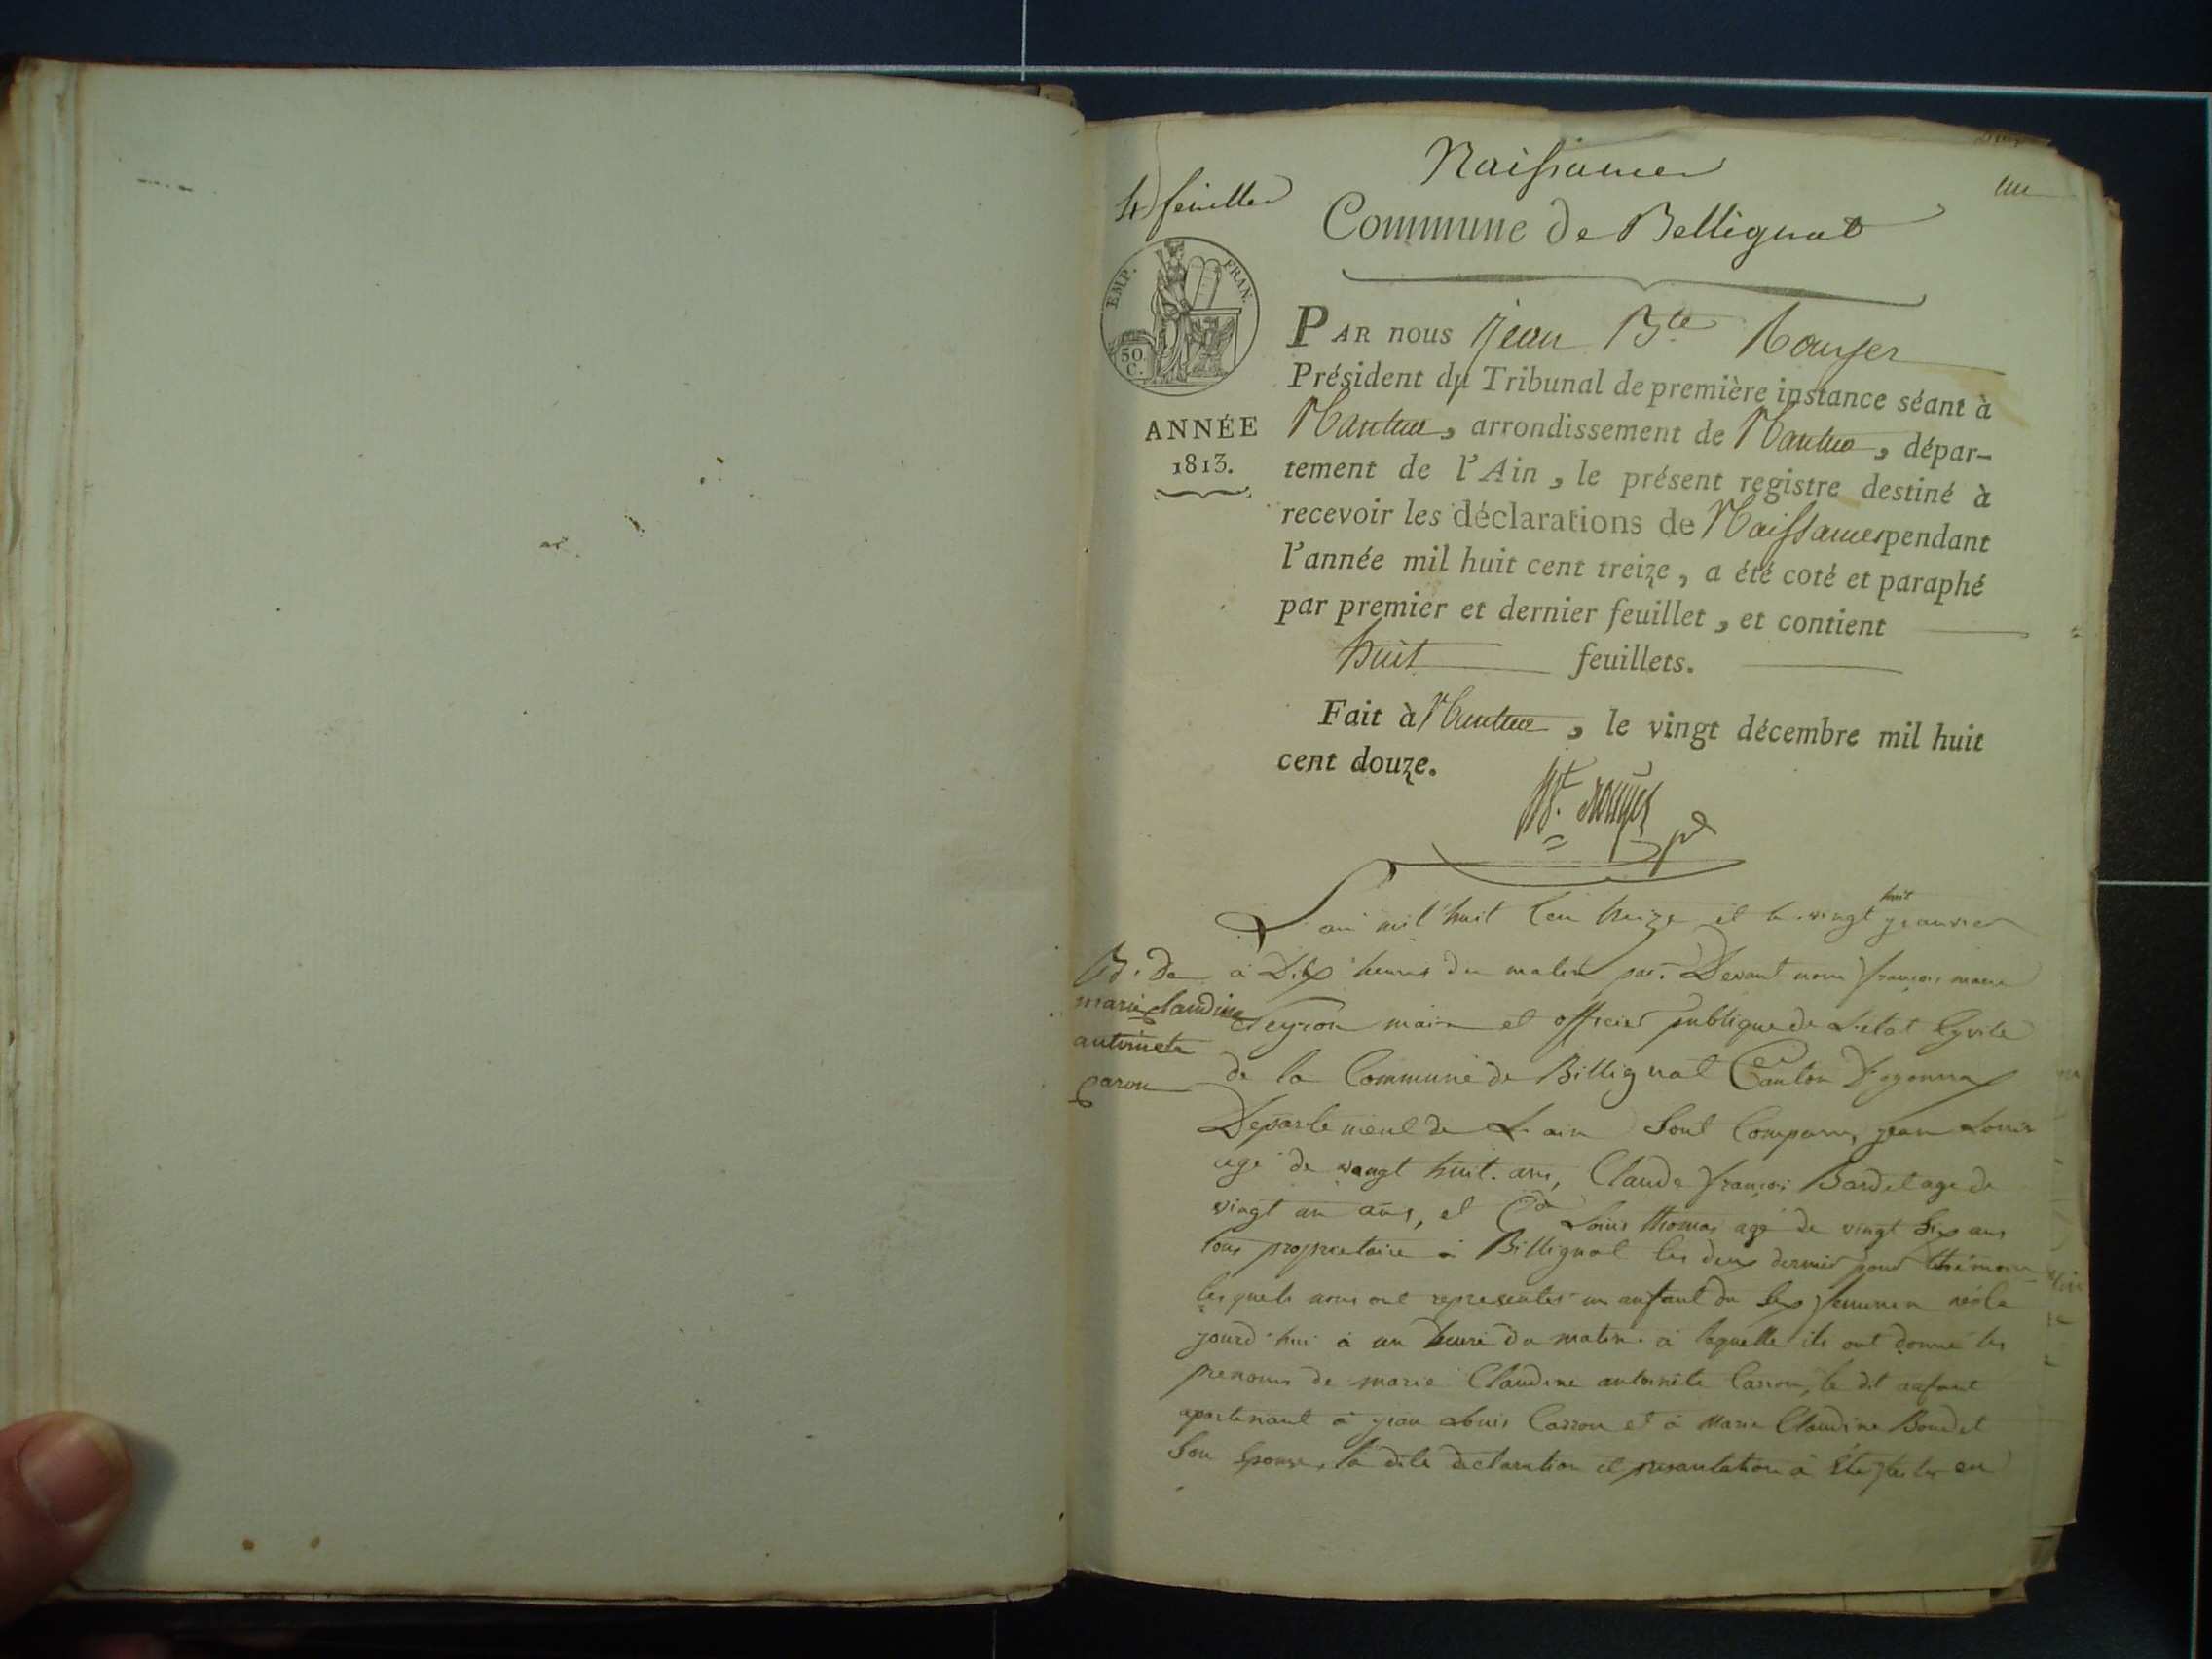 Naissances
un
4 feuilles
Commune de Bellignat
EMP. FRAN.
50 C.
ANNÉE
1813.
PAR nous Jean Bte Rouyer
Président du Tribunal de première instance séant à
Nantua, arrondissement de Nantua, dépar-
tement de l'Ain, le présent registre destiné à
recevoir les déclarations de Naissances pendant
l'année mil huit cent treize, a été coté et paraphé
par premier et dernier feuillet, et contient
huit feuillets.
Fait à Nantua, le vingt décembre mil huit
cent douze.
Bt. rouyer pt
L'an mil huit cen treize et le vingt huit jeanvier
à Dix heures du matin par Devant nous françois marie
marie claudine
antoinete
Caron
maire et officier publique de L'etat Cyvile
de la Commune de Billignat Canton D'oyonnax
Departement de L'ain Sont Comparus jean Louis
age de vangt huit ans, Claude françois Bardet age de
vingt un ans, et Louis thomas agé de vingt Six ans
tous proprietaire à Billignat les deux dernier pour
lesquels nous ont representes un anfant du Sex femenin né le
jourd'hui à un heure du matin à laquelle ils ont donné les
prenoms de marie Claudine antoinete Carron, le dit anfant
apartenant à jean Louis Carron et à Marie Claudine Bondet
Son Epouse, la dite declaration et presantation à Été faites en